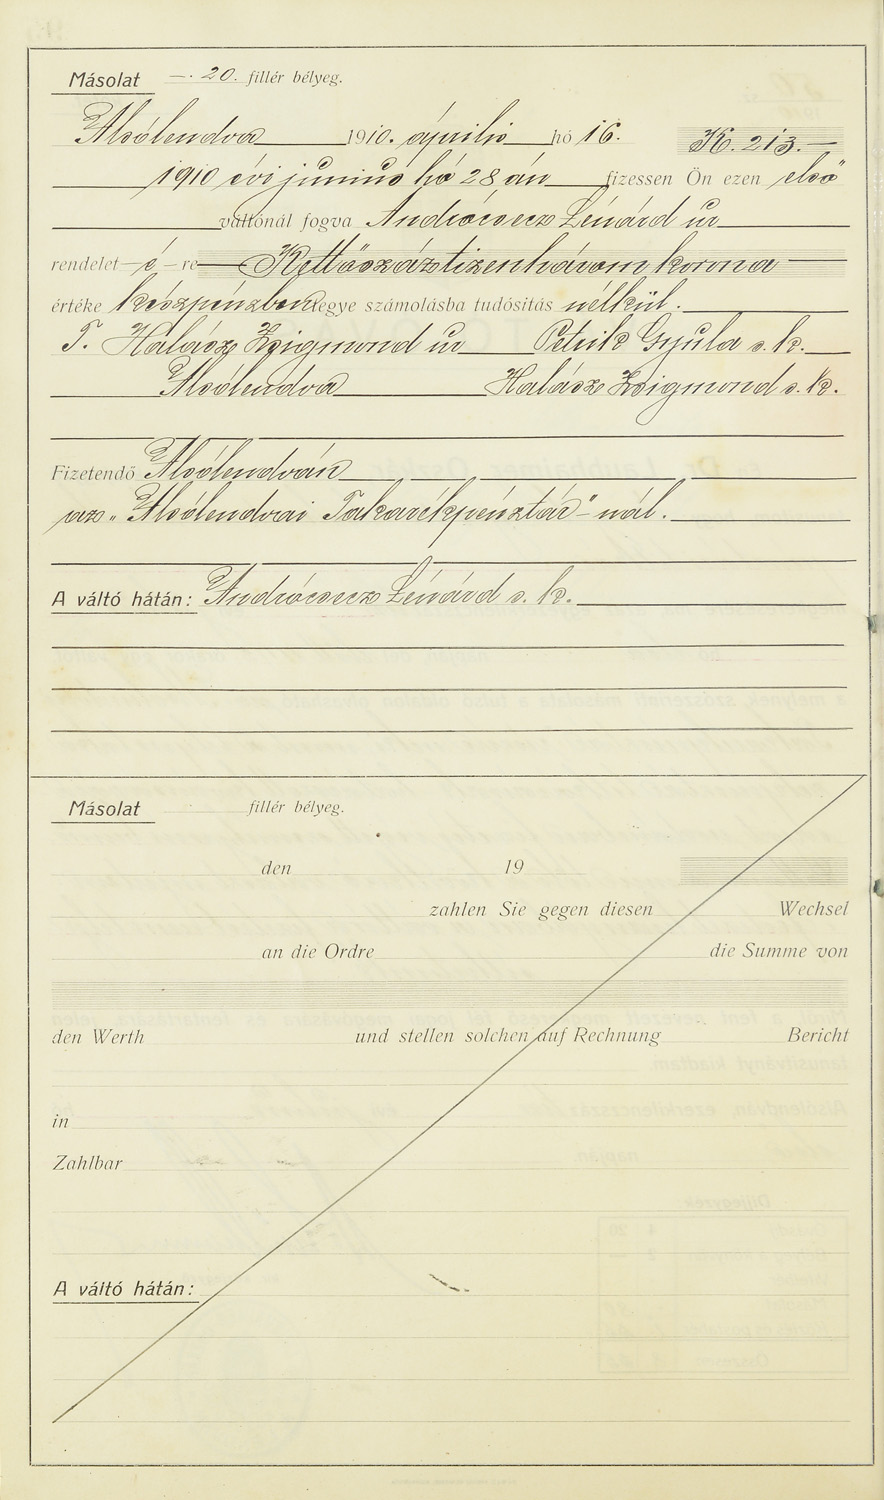 Másolat —. 20. fillér bélyeg.
Alsólendva 1910. április hó 16. K. 213.—
1910 évi junius hó 28 án fizessen Ön ezen első
váltónál fogva Andrócsecz Lénárd úr
rendelet-é-re Kettőszáztizenhárom korona
értéke készpénzben tegye számolásba tudósítás nélkül.
T. Halász Zsigmond úr Petrik Gyula s. k.
Alsólendva Halász Zsigmond s. k.
Fizetendő Alsólendván
az „Alsólendvai Takarékpénztár"-nál.
A váltó hátán: Andrócsecz Lénárd s. k.
Másolat fillér bélyeg.
den 19
zahlen Sie gegen diesen Wechsel
an die Ordre die Summe von
den Werth und stellen solchen auf Rechnung Bericht
in
Zahlbar
A váltó hátán: